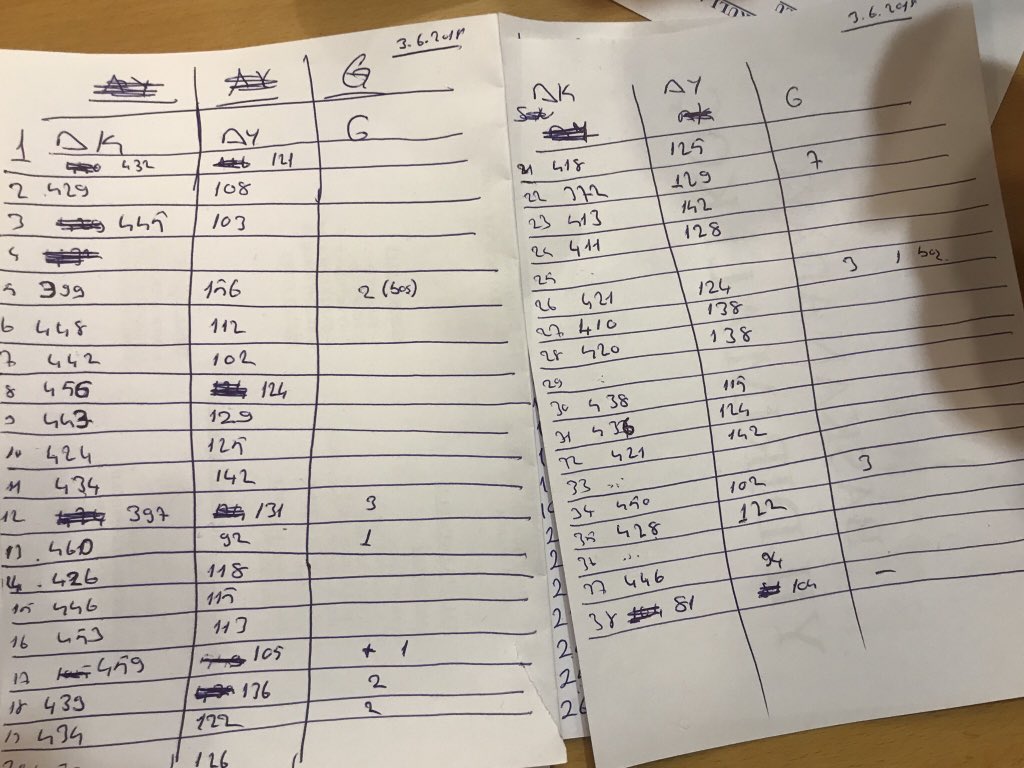 3.6.2018
G
1 ΔK ΔY G
432 121
2 429 108
3 445 103
4
5 399 156 2 (boş)
6 448 112
7 442 102
8 456 124
9 443 129
10 424 125
11 434 142
12 397 131 3
13 460 92 1
14 426 118
15 446 115
16 453 113
17 459 105 + 1
18 439 136 2
19 434 122 2
126
3.6.2018
ΔK ΔY G
21 418 125
22 372 129 7
23 413 142
24 411 128
25 ..
26 421 124 3 1 boş
27 410 138
28 420 138
29 ..
30 438 115
31 436 124
32 421 142
33 ...
34 450 102 3
35 428 122
36 ...
37 446 94
38 81 104 -